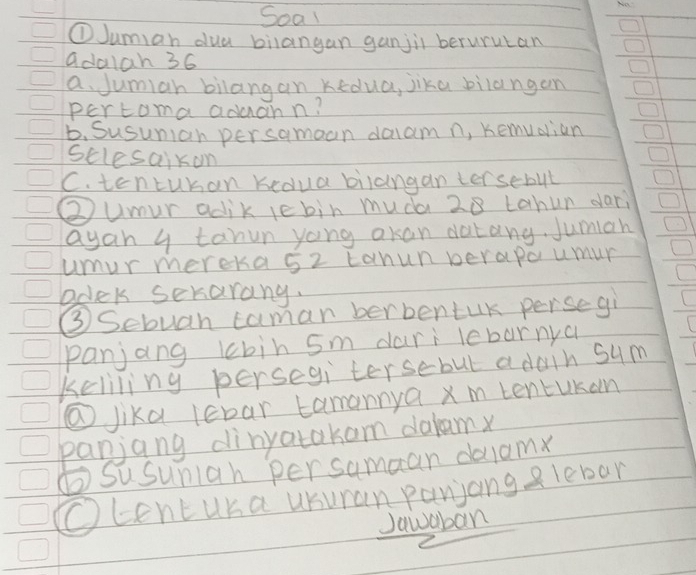 Soal
① Jumlah dua bilangan ganjil berurutan
adalah 36
a. Jumlah bilangan kedua, jika bilangan
pertama adalah n?
b. Susunlah persamaan dalam n, kemudian
selesaikan
C. tentukan kedua bilangan tersebut
② Umur adik lebih muda 28 tahun dari
ayah 4 tahun yang akan datang. Jumlah
umur mereka 52 tahun berapa umur
adek sekarang.
③ Sebuah taman berbentuk persegi
panjang lebih 5m dari lebarnya
keliling persegi tersebut adalh 54m
ⓐ Jika lebar tamannya x m tentukan
panjang dinyatakam dalam x
ⓑ Susunlah persamaan dalam x
ⓒ tentuka ukuran panjang & lebar
Jawaban
No: